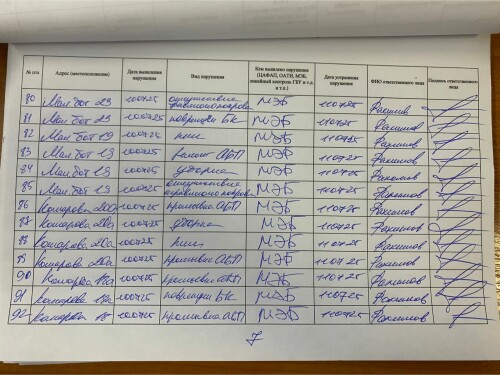 № п/п Адрес (местоположение) Дата выявления нарушения Вид нарушения Кем выявлено нарушение (ЦАФАП, ОАТИ, МЭБ, линейный контроль ГБУ и т.д. и т.п.) Дата устранения нарушения ФИО ответственного лица Подпись ответственного лица
80 Мал бот 23 100725 отсутствие МЭБ 110725 Рахимов
81 Мал бот 23 100725 повреждён БК МЭБ 110725 Рахимов
82 Мал бот 19 100725 МЭБ 110725 Рахимов
83 Мал бот 19 100725 ремонт АБП МЭБ 110725 Рахимов
84 Мал бот 19 100725 уборка МЭБ 110725 Рахимов
85 Мал бот 19 100725 отсутствие МЭБ 110725 Рахимов
86 Комарова 20а 100725 АБП МЭБ 110725 Рахимов
87 Комарова 20а 100725 уборка МЭБ 110725 Рахимов
88 Комарова 20а 100725 МЭБ 110725 Рахимов
89 Комарова 20а 100725 АБП МЭБ 110725 Рахимов
90 Комарова 100725 АБП МЭБ 110725 Рахимов
91 Комарова 100725 повреждён БК МЭБ 110725 Рахимов
92 Комарова 100725 АБП МЭБ 110725 Рахимов
7